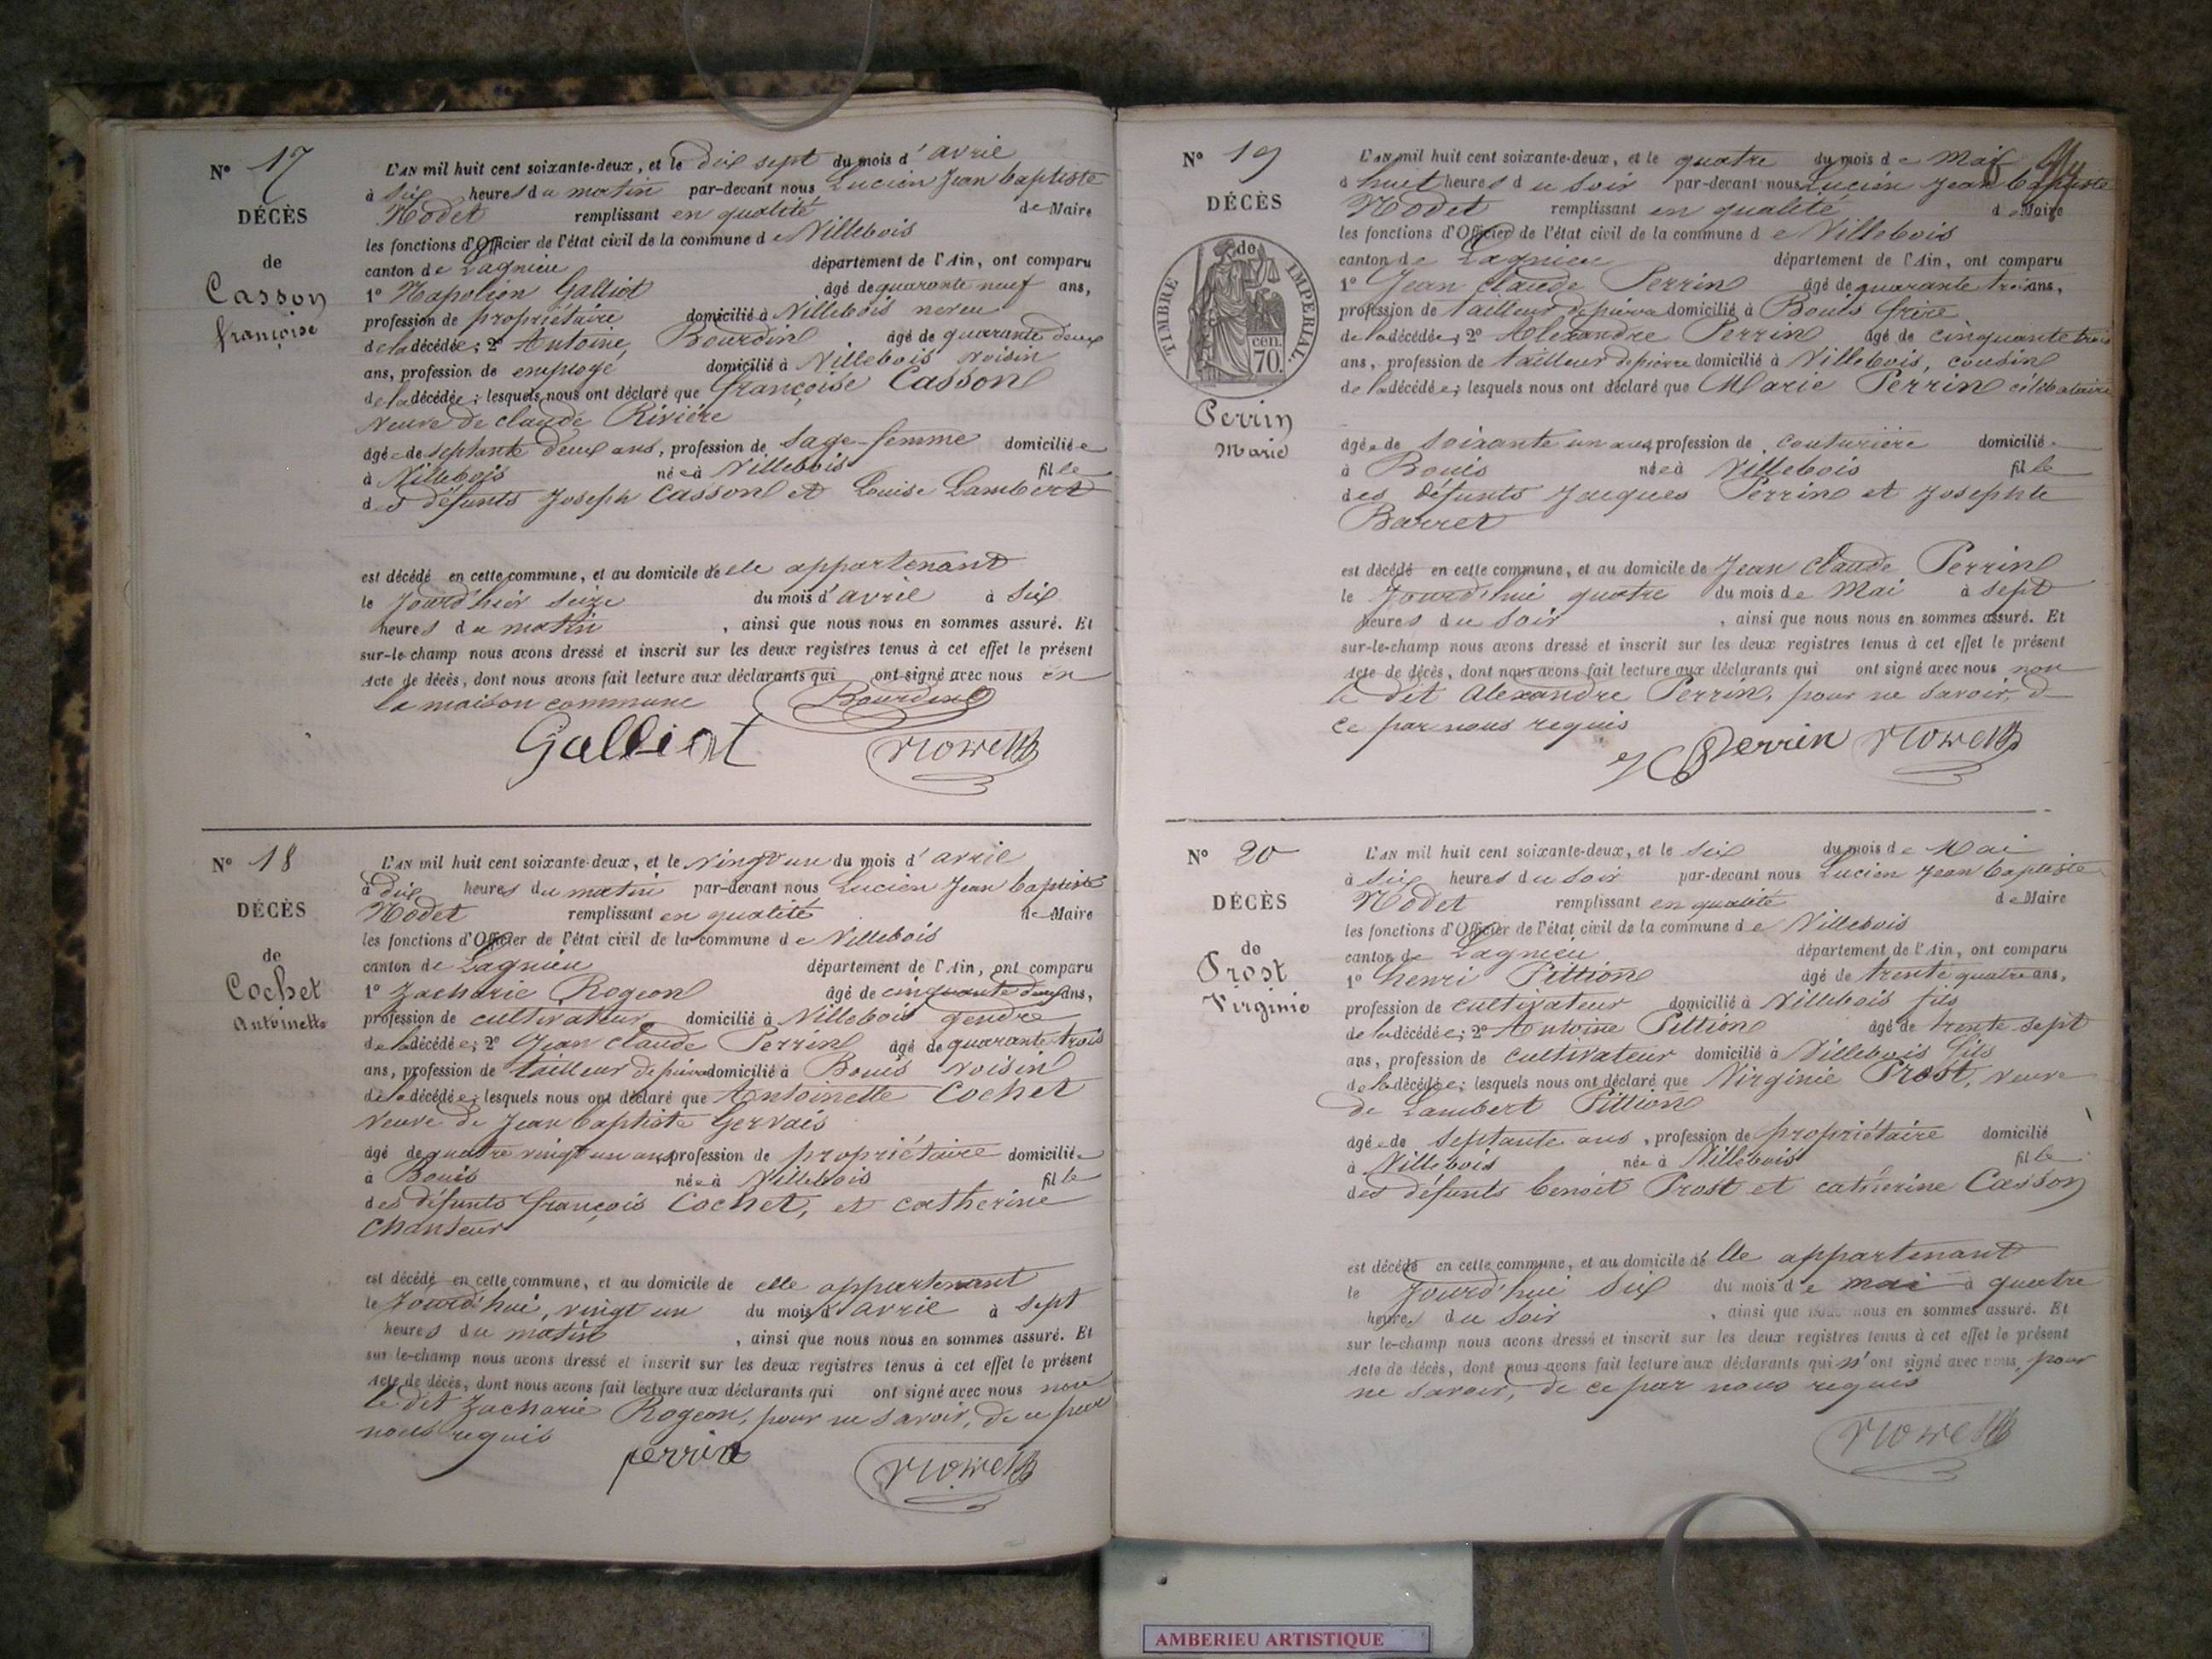 N° 17
DÉCÈS
de
Casson
françoise
L'AN mil huit cent soixante-deux, et le dix sept du mois d'avril
à six heures du matin par-devant nous Lucien Jean baptiste
Nodet remplissant en qualité de Maire
les fonctions d'Officier de l'état civil de la commune de Villebois
canton de Lagnieu département de l'Ain, ont comparu
1° Napoléon Galliot âgé de quarante neuf ans,
profession de propriétaire domicilié à Villebois neveu
de la décédée; 2° Antoine Bourdin âgé de quarante deux
ans, profession de employé domicilié à Villebois voisin
de la décédée; lesquels nous ont déclaré que françoise Casson
veuve de claude Rivière
âgée de septante deux ans, profession de sage-femme domiciliée
à Villebois née à Villebois fille
des défunts Joseph Casson et Louise Lambert
est décédé en cette commune, et au domicile de elle appartenant
le Jourd'hier seize du mois d'avril à six
heures du matin, ainsi que nous nous en sommes assuré. Et
sur-le-champ nous avons dressé et inscrit sur les deux registres tenus à cet effet le présent
Acte de décès, dont nous avons fait lecture aux déclarants qui ont signé avec nous en
la maison commune Bourdin
Galliot
N° 18
DÉCÈS
de
Cochet
Antoinette
L'AN mil huit cent soixante-deux, et le vingt un du mois d'avril
à dix heures du matin par-devant nous Lucien Jean baptiste
Nodet remplissant en qualité de Maire
les fonctions d'Officier de l'état civil de la commune de Villebois
canton de Lagnieu département de l'Ain, ont comparu
1° Zacharie Rogeon âgé de cinquante deux ans,
profession de cultivateur domicilié à Villebois gendre
de la décédée; 2° Jean claude Perrin âgé de quarante trois
ans, profession de tailleur de pierre domicilié à Bouis voisin
de la décédée; lesquels nous ont déclaré que Antoinette Cochet
veuve de Jean baptiste Gervais
âgé de quatre vingt un ans profession de propriétaire domiciliée
à Bouis née à Villebois fille
des défunts françois Cochet, et catherine
Chanteur
est décédé en cette commune, et au domicile de elle appartenant
le Jourd'hui, vingt un du mois d'avril à sept
heures du matin, ainsi que nous nous en sommes assuré. Et
sur le-champ nous avons dressé et inscrit sur les deux registres tenus à cet effet le présent
Acte de décès, dont nous avons fait lecture aux déclarants qui ont signé avec nous non
le dit Zacharie Rogeon, pour ne savoir, de ce par
nous requis
perrin
N° 19
DÉCÈS
de
TIMBRE IMPERIAL.
70. cen.
Perrin
Marie
L'AN mil huit cent soixante-deux, et le quatre du mois de Mai
à huit heures du soir par-devant nous Lucien Jean baptiste
Nodet remplissant en qualité de Maire
les fonctions d'Officier de l'état civil de la commune de Villebois
canton de Lagnieu département de l'Ain, ont comparu
1° Jean claude Perrin âgé de quarante trois ans,
profession de tailleur de pierre domicilié à Bouis frère
de la décédée; 2° Alexandre Perrin âgé de cinquante trois
ans, profession de tailleur de pierre domicilié à Villebois, cousin
de la décédée; lesquels nous ont déclaré que Marie Perrin célibataire
âgée de soixante un ans profession de couturière domiciliée
à Bouis née à Villebois fille
des défunts Jacques Perrin et Josephte
Barret
est décédé en cette commune, et au domicile de Jean Claude Perrin
le Jourd'hui quatre du mois de Mai à sept
heures du soir, ainsi que nous nous en sommes assuré. Et
sur-le-champ nous avons dressé et inscrit sur les deux registres tenus à cet effet le présent
Acte de décès, dont nous avons fait lecture aux déclarants qui ont signé avec nous non
le dit Alexandre Perrin, pour ne savoir, d
ce par nous requis
Perrin
N° 20
DÉCÈS
de
Prost
Virginie
L'AN mil huit cent soixante-deux, et le six du mois de Mai
à six heures du soir par-devant nous Lucien Jean baptiste
Nodet remplissant en qualité de Maire
les fonctions d'Officier de l'état civil de la commune de Villebois
canton de Lagnieu département de l'Ain, ont comparu
1° henri Pittion âgé de trente quatre ans,
profession de cultivateur domicilié à Villebois fils
de la décédée; 2° Antoine Pittion âgé de trente sept
ans, profession de cultivateur domicilié à Villebois fils
de la décédée; lesquels nous ont déclaré que Virginie Prost, veuve
de Lambert Pittion
âgée de septante ans, profession de propriétaire domicilié
à Villebois née à Villebois fille
des défunts benoit Prost et catherine Casson
est décédé en cette commune, et au domicile de lle appartenant
le Jourd'hui six du mois de mai à quatre
heures du soir, ainsi que nous nous en sommes assuré. Et
sur le-champ nous avons dressé et inscrit sur les deux registres tenus à cet effet le présent
Acte de décès, dont nous avons fait lecture aux déclarants qui n'ont signé avec nous, pour
ne savoir, de ce par nous requis
AMBERIEU ARTISTIQUE